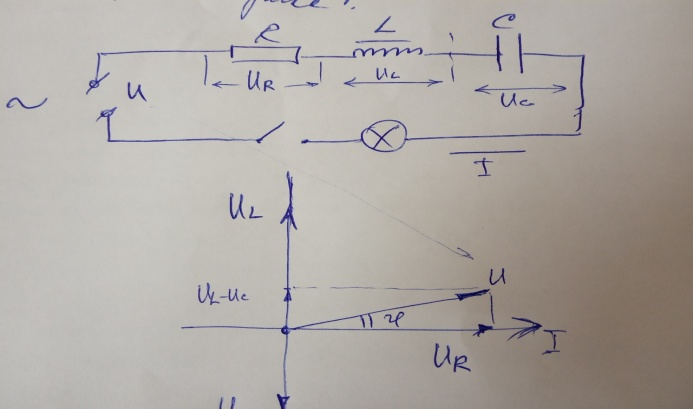 R L C
U U_R U_L U_C
~
I
U_L
U_L-U_C U
φ
U_R I